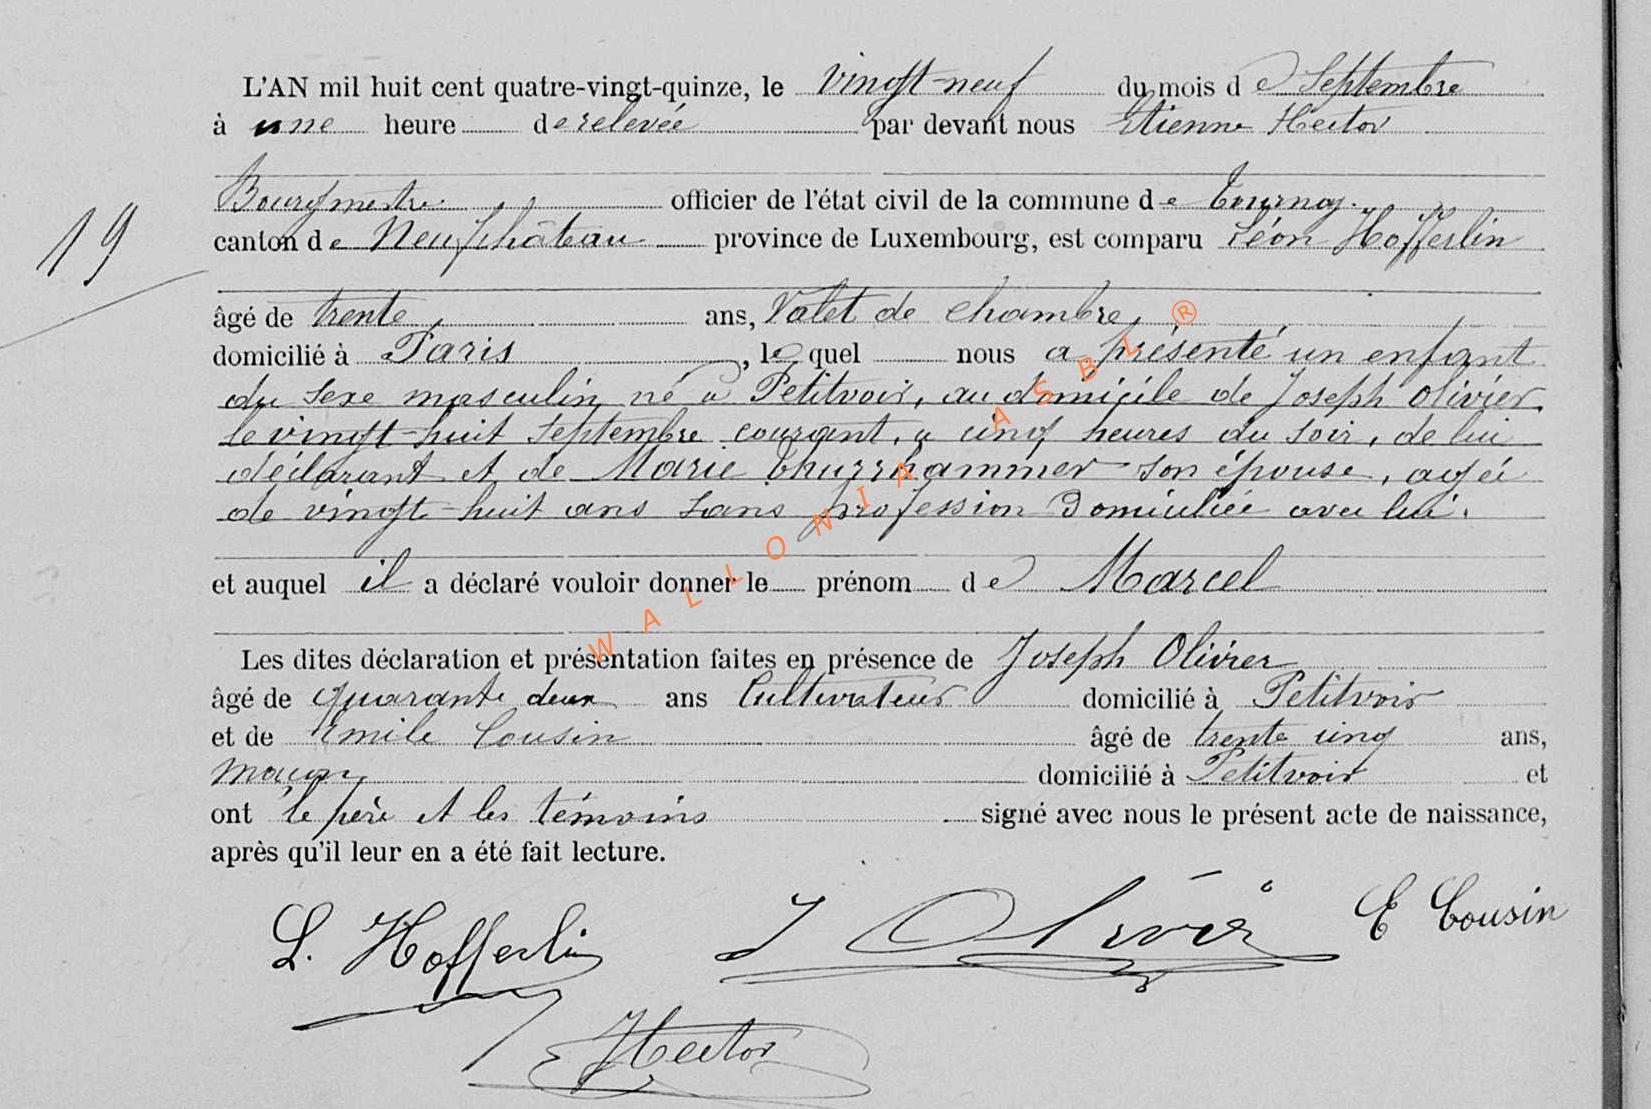 L'AN mil huit cent quatre-vingt-quinze, le vingt-neuf du mois de Septembre
à une heure de relevée par devant nous Etienne Hector
Bourgmestre officier de l'état civil de la commune de Tournay.
19
canton de Neufchâteau province de Luxembourg, est comparu Léon Hofferlin
âgé de trente ans, Valet de chambre,
domicilié à Paris, lequel nous a présenté un enfant
du sexe masculin né à Petitvoir, au domicile de Joseph Olivier
le vingt-huit Septembre courant, à cinq heures du soir, de lui
déclarant et de Marie Thurrhammer son épouse, agée
de vingt-huit ans sans profession Domiciliée avec lui.
et auquel il a déclaré vouloir donner le prénom de Marcel
Les dites déclaration et présentation faites en présence de Joseph Olivier
âgé de quarante deux ans Cultivateur domicilié à Petitvoir
et de Emile Cousin âgé de trente cinq ans,
maçon domicilié à Petitvoir et
ont le père et les témoins signé avec nous le présent acte de naissance,
après qu'il leur en a été fait lecture.
L. Hofferlin J Olivier E Cousin
Hector
WALLONIA ASBL ®